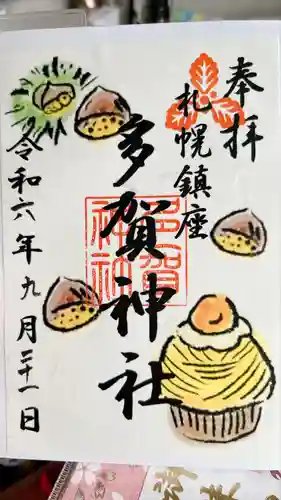 奉拝
札幌鎮座
多賀神社
令和六年九月二十一日